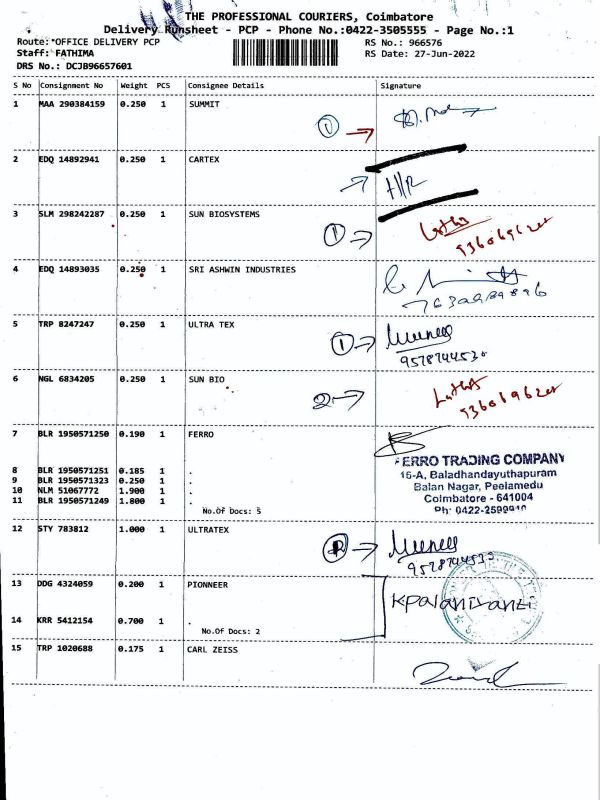 THE PROFESSIONAL COURIERS, Coimbatore
Delivery Runsheet - PCP - Phone No.:0422-3505555 - Page No.:1
Route: OFFICE DELIVERY PCP RS No.: 966576
Staff: FATHIMA RS Date: 27-Jun-2022
DRS No.: DCJB96657601
S No Consignment No Weight PCS Consignee Details Signature
1 MAA 290384159 0.250 1 SUMMIT
1
2 EDQ 14892941 0.250 1 CARTEX
3 SLM 298242287 0.250 1 SUN BIOSYSTEMS
1 Latha
4 EDQ 14893035 0.250 1 SRI ASHWIN INDUSTRIES
5 TRP 8247247 0.250 1 ULTRA TEX
1
6 NGL 6834205 0.250 1 SUN BIO
2 Latha
7 BLR 1950571250 0.190 1 FERRO
FERRO TRADING COMPANY
8 BLR 1950571251 0.185 1 . 15-A, Baladhandayuthapuram
9 BLR 1950571323 0.250 1 . Balan Nagar, Peelamedu
10 NLM 51067772 1.900 1 . Coimbatore - 641004
11 BLR 1950571249 1.800 1 .
No.Of Docs: 5 Ph: 0422-
12 STY 783812 1.000 1 ULTRATEX
13 DDG 4324059 0.200 1 PIONNEER
14 KRR 5412154 0.700 1 .
No.Of Docs: 2
15 TRP 1020688 0.175 1 CARL ZEISS